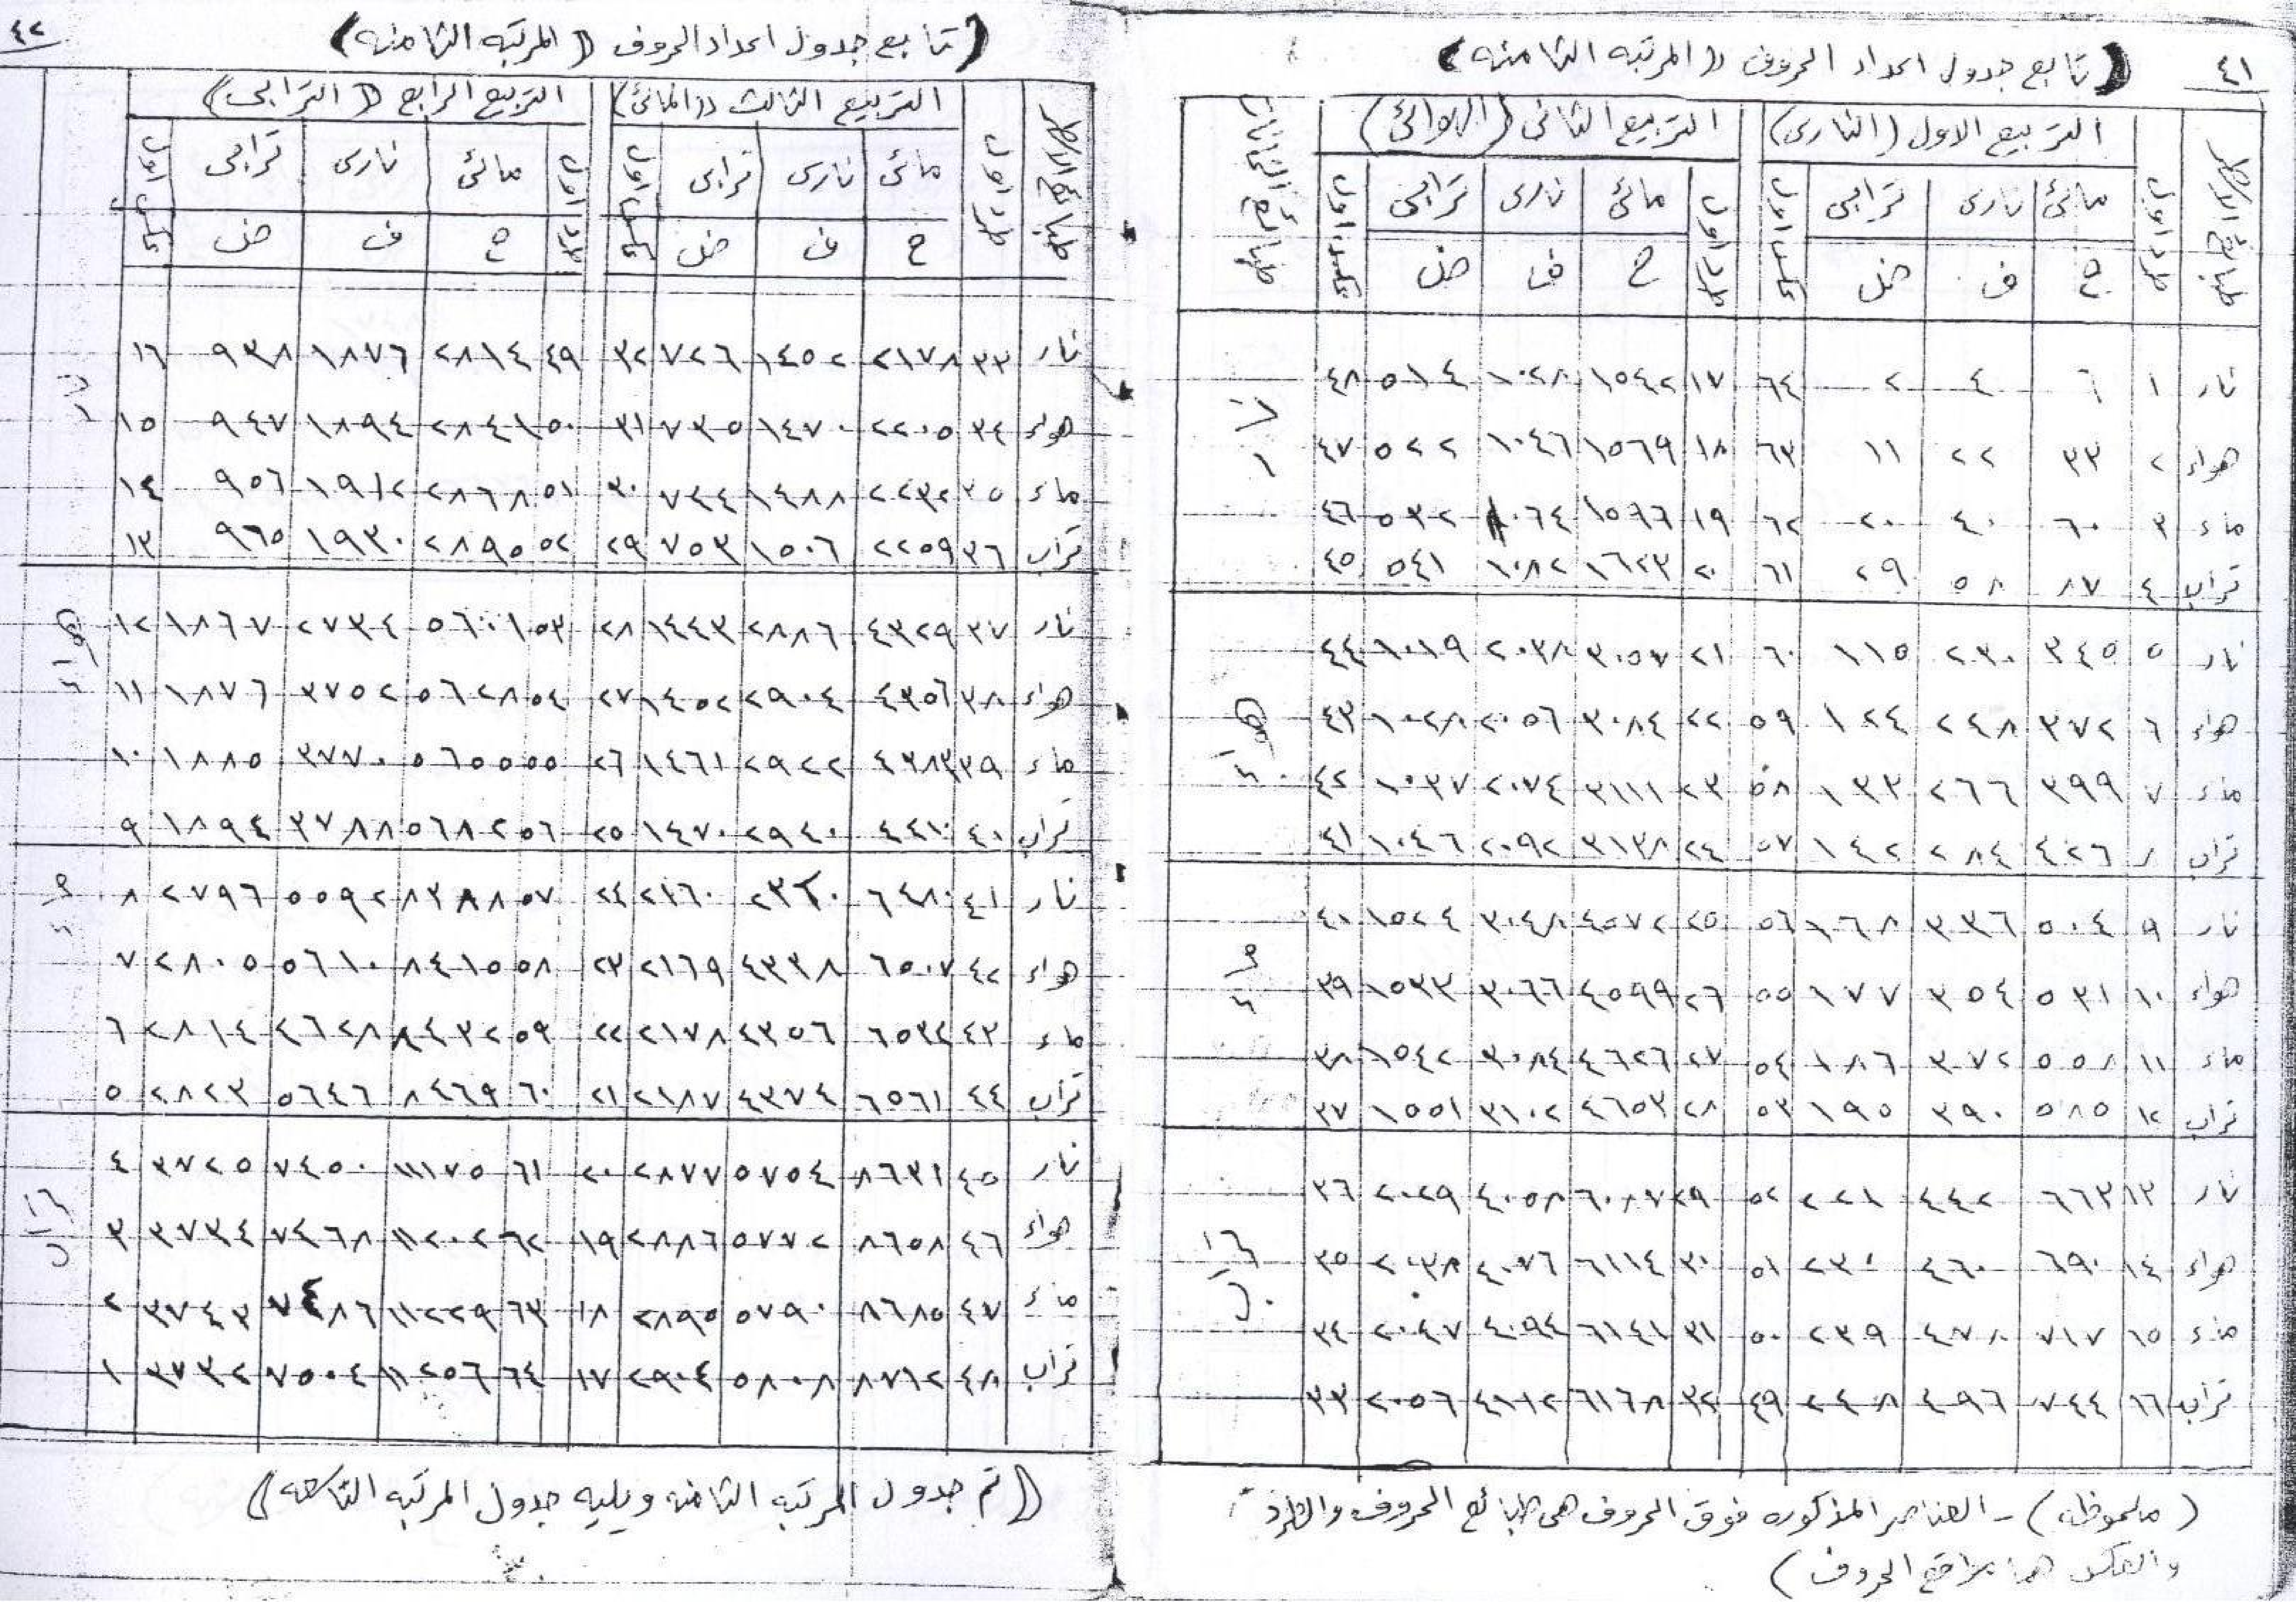 ٤١
(تابع جدول اعداد الحروف ((المرتبه الثامنه)
التربيع الاول (النارى) التربيع الثانى (الهوائى)
مائى نارى ترابى مائى نارى ترابى
ح ف ض ح ف ض
نار ١ ٦ ٤ ٢ ٦٤ ١٧ ١٥٤٢ ١٠٢٨ ٥١٤ ٤٨
هواء ٢ ٣٣ ٢٢ ١١ ٦٣ ١٨ ١٥٦٩ ١٠٤٦ ٥٢٢ ٤٧
ماء ٣ ٦٠ ٤٠ ٢٠ ٦٢ ١٩ ١٥٦٦ ١٠٦٤ ٥٣٢ ٤٦
تراب ٤ ٨٧ ٥٨ ٢٩ ٦١ ٢٠ ١٦٢٣ ١٠٨٢ ٥٤١ ٤٥
نار ٥ ٣٤٥ ٢٣٠ ١١٥ ٦٠ ٢١ ٣٠٥٧ ٢٠٣٨ ١٠١٩ ٤٤
هواء ٦ ٣٧٢ ٢٤٨ ١٢٤ ٥٩ ٢٢ ٣٠٨٤ ٢٠٥٦ ١٠٢٨ ٤٣
هواء
ماء ٧ ٣٩٩ ٢٦٦ ١٣٣ ٥٨ ٢٣ ٣١١١ ٢٠٧٤ ١٠٣٧ ٤٢
تراب ٨ ٤٢٦ ٢٨٤ ١٤٢ ٥٧ ٢٤ ٣١٣٨ ٢٠٩٢ ١٠٤٦ ٤١
نار ٩ ٥٠٤ ٣٣٦ ١٦٨ ٥٦ ٢٥ ٤٥٧٢ ٣٠٤٨ ١٥٢٤ ٤٠
هواء ١٠ ٥٣١ ٣٥٤ ١٧٧ ٥٥ ٢٦ ٤٥٩٩ ٣٠٦٦ ١٥٣٣ ٣٩
ماء ١١ ٥٥٨ ٣٧٢ ١٨٦ ٥٤ ٢٧ ٤٦٢٦ ٣٠٨٤ ١٥٤٢ ٣٨
تراب ١٢ ٥٨٥ ٣٩٠ ١٩٥ ٥٣ ٢٨ ٤٦٥٣ ٣١٠٢ ١٥٥١ ٣٧
نار ١٣ ٦٦٣ ٤٤٢ ٢٢١ ٥٢ ٢٩ ٦٠٨٧ ٤٠٥٨ ٢٠٢٩ ٣٦
هواء ١٤ ٦٩٠ ٤٦٠ ٢٣٠ ٥١ ٣٠ ٦١١٤ ٤٠٧٦ ٢٠٣٨ ٣٥
ماء ١٥ ٧١٧ ٤٧٨ ٢٣٩ ٥٠ ٣١ ٦١٤١ ٤٠٩٤ ٢٠٤٧ ٣٤
تراب ١٦ ٧٤٤ ٤٩٦ ٢٤٨ ٤٩ ٣٢ ٦١٦٨ ٤١١٢ ٢٠٥٦ ٣٣
(ملحوظه) - العناصر المذكوره فوق الحروف هى طبائع الحروف والطرد
والعكس هما مواقع الحروف)
٤٢
(تابع جدول اعداد الحروف ((المرتبه الثامنه)
التربيع الثالث ((المائى) التربيع الرابع ((الترابى)
مائى نارى ترابى مائى نارى ترابى
ح ف ض ح ف ض
نار ٣٣ ٢١٧٨ ١٤٥٢ ٧٢٦ ٣٢ ٤٩ ٢٨١٤ ١٨٧٦ ٩٣٨ ١٦
هواء ٣٤ ٢٢٠٥ ١٤٧٠ ٧٣٥ ٣١ ٥٠ ٢٨٤١ ١٨٩٤ ٩٤٧ ١٥
ماء ٣٥ ٢٢٣٢ ١٤٨٨ ٧٤٤ ٣٠ ٥١ ٢٨٦٨ ١٩١٢ ٩٥٦ ١٤
تراب ٣٦ ٢٢٥٩ ١٥٠٦ ٧٥٣ ٢٩ ٥٢ ٢٨٩٥ ١٩٣٠ ٩٦٥ ١٣
نار ٣٧ ٤٣٢٩ ٢٨٨٦ ١٤٤٣ ٢٨ ٥٣ ٥٦٠١ ٢٧٣٤ ١٨٦٧ ١٢
هواء ٣٨ ٤٣٥٦ ٢٩٠٤ ١٤٥٢ ٢٧ ٥٤ ٥٦٢٨ ٣٧٥٢ ١٨٧٦ ١١
هواء
ماء ٣٩ ٤٣٨٣ ٢٩٢٢ ١٤٦١ ٢٦ ٥٥ ٥٦٥٥ ٣٧٧٠ ١٨٨٥ ١٠
تراب ٤٠ ٤٤١٠ ٢٩٤٠ ١٤٧٠ ٢٥ ٥٦ ٥٦٨٢ ٣٧٨٨ ١٨٩٤ ٩
نار ٤١ ٦٤٨٠ ٢١٦٠ ٢٤ ٥٧ ٨٣٨٨ ٥٥٩٢ ٢٧٩٦ ٨
هواء ٤٢ ٦٥٠٧ ٤٣٣٨ ٢١٦٩ ٢٣ ٥٨ ٨٤١٥ ٥٦١٠ ٢٨٠٥ ٧
ماء ٤٣ ٦٥٣٤ ٤٣٥٦ ٢١٧٨ ٢٢ ٥٩ ٨٤٣٢ ٤٦٢٨ ٢٨١٤ ٦
تراب ٤٤ ٦٥٦١ ٤٣٧٤ ٢١٨٧ ٢١ ٦٠ ٨٤٦٩ ٥٦٤٦ ٢٨٢٣ ٥
نار ٤٥ ٨٦٣١ ٥٧٥٤ ٢٨٧٧ ٢٠ ٦١ ١١١٧٥ ٧٤٥٠ ٣٧٢٥ ٤
هواء ٤٦ ٨٦٥٨ ٥٧٧٢ ٢٨٨٦ ١٩ ٦٢ ١١٢٠٢ ٧٤٦٨ ٣٧٣٤ ٣
ماء ٤٧ ٨٦٨٥ ٥٧٩٠ ٢٨٩٥ ١٨ ٦٣ ١١٢٢٩ ٧٤٨٦ ٣٧٤٣ ٢
تراب ٤٨ ٨٧١٢ ٥٨٠٨ ٢٩٠٤ ١٧ ٦٤ ١١٢٥٦ ٧٥٠٤ ٣٧٣٢ ١
((تم جدول المرتبه الثامنه ويليه جدول المرتبه التاسعه))